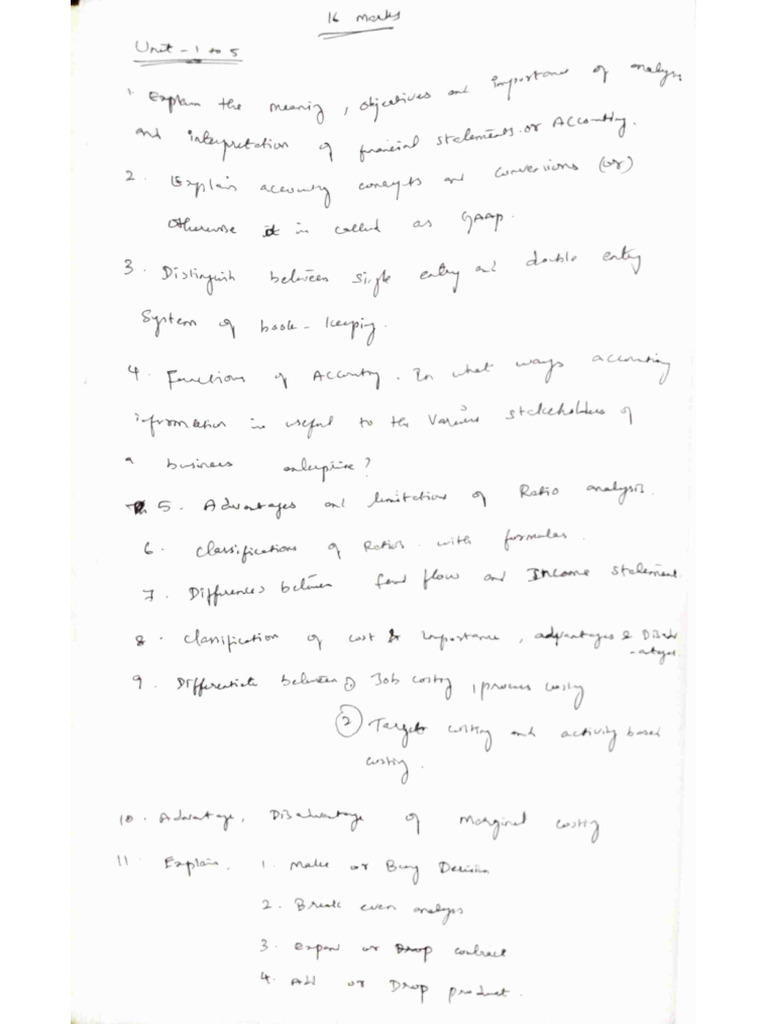 16 marks
Unit - 1 to 5
1. Explain the meaning, objectives and importance of analysis
and interpretation of financial statements. or Accounting.
2. Explain accounting concepts and conversions (or)
Otherwise it is called as GAAP.
3. Distinguish between single entry and double entry
System of book - keeping.
4. Functions of Accounting. In what ways accounting
information is useful to the various stakeholders of
a business enterprise?
5. Advantages and limitations of Ratio analysis.
6. Classifications of Ratios with formulas.
7. Differences between fund flow and Income statement.
8. Classification of cost & importance, advantages & Disadv
-antages.
9. Differentiate between 1. Job costing, process costing
2 Target costing and activity based
costing.
10. Advantage, Disadvantage of marginal costing
11. Explain. 1. Make or Buy Decision
2. Break even analysis
3. expand or Drop contract
4. Add or Drop product.